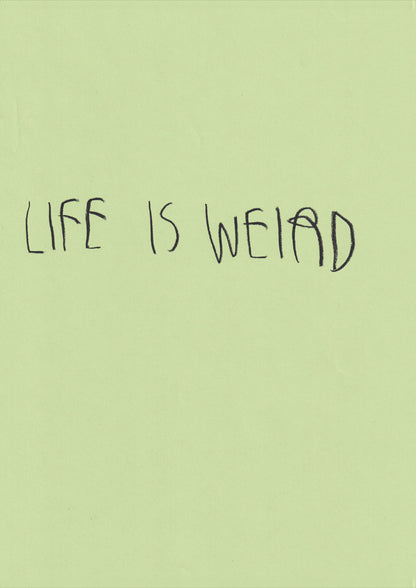 LIFE IS WEIRD